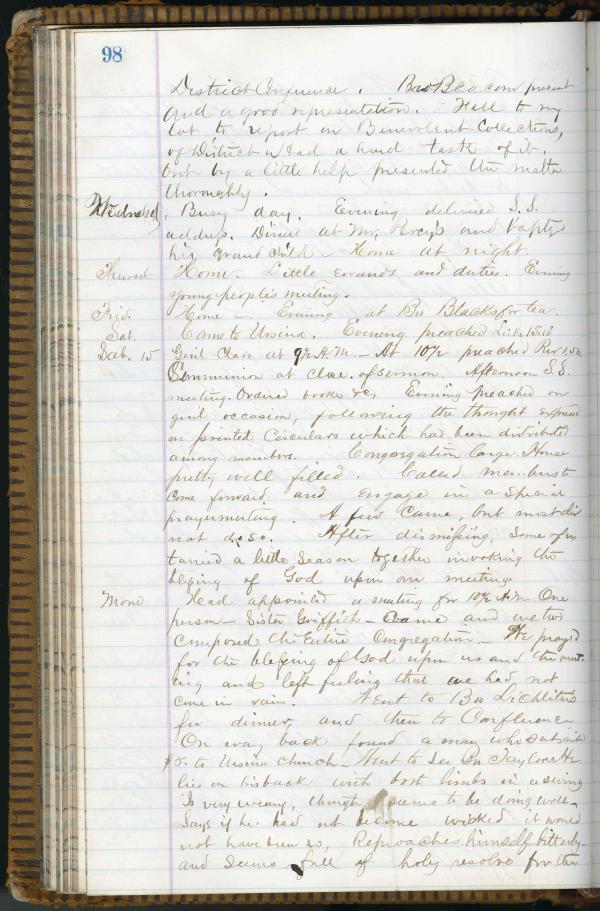 98
District Conference. Bro Beacom present
and a good representation. Fell to my
lot to report on Benevolent Collections,
of District. Had a hard task of it.
but by a little help presented the matter
thoroughly.
Wednesday, Busy day. Evening delivered S.S.
address. Dined at Mr. and baptized
his grand child. Home at night.
Thursd Home. Little errands and duties. Evening
young people's meeting.
Frid. Home – Evening at Bro Blacks for tea.
Sat. Came to Ursina. Evening preached Luke 15:10
Sab. 15 Genl Class at 9½ A.M. – At 10½ preached Rev 1,
Communion at close of sermon. Afternoon S.S.
meeting. Ordered books &c, Evening preached on
genl occasion, following the thought expressed
on printed Circulars which had been distributed
among members. Congregation large. House
pretty well filled. Called members to
come forward and engage in a special
prayermeeting. A few came, but most did
not do so. After dismissing, some of us
tarried a little season together invoking the
blessing of God upon our meeting.
Mond Had appointed a meeting for 10½ A.M. One
person – Sister Griffith – came and we two
composed the Entire Congregation – We prayed
for the blessing of God upon us and the meet-
ing and left feeling that we had not
come in vain. Went to Bro Lichliters
for dinner, and then to Confluence
On way back found a man who subscribed
$5. to Ursina Church – Went to see Bro Taylor. He
lies on his back with both limbs in a swing
Is very weary, though seems to be doing well.
Says if he had not become wicked it would
not have been so, Reproaches himself bitterly
and seems full of holy resolve for the